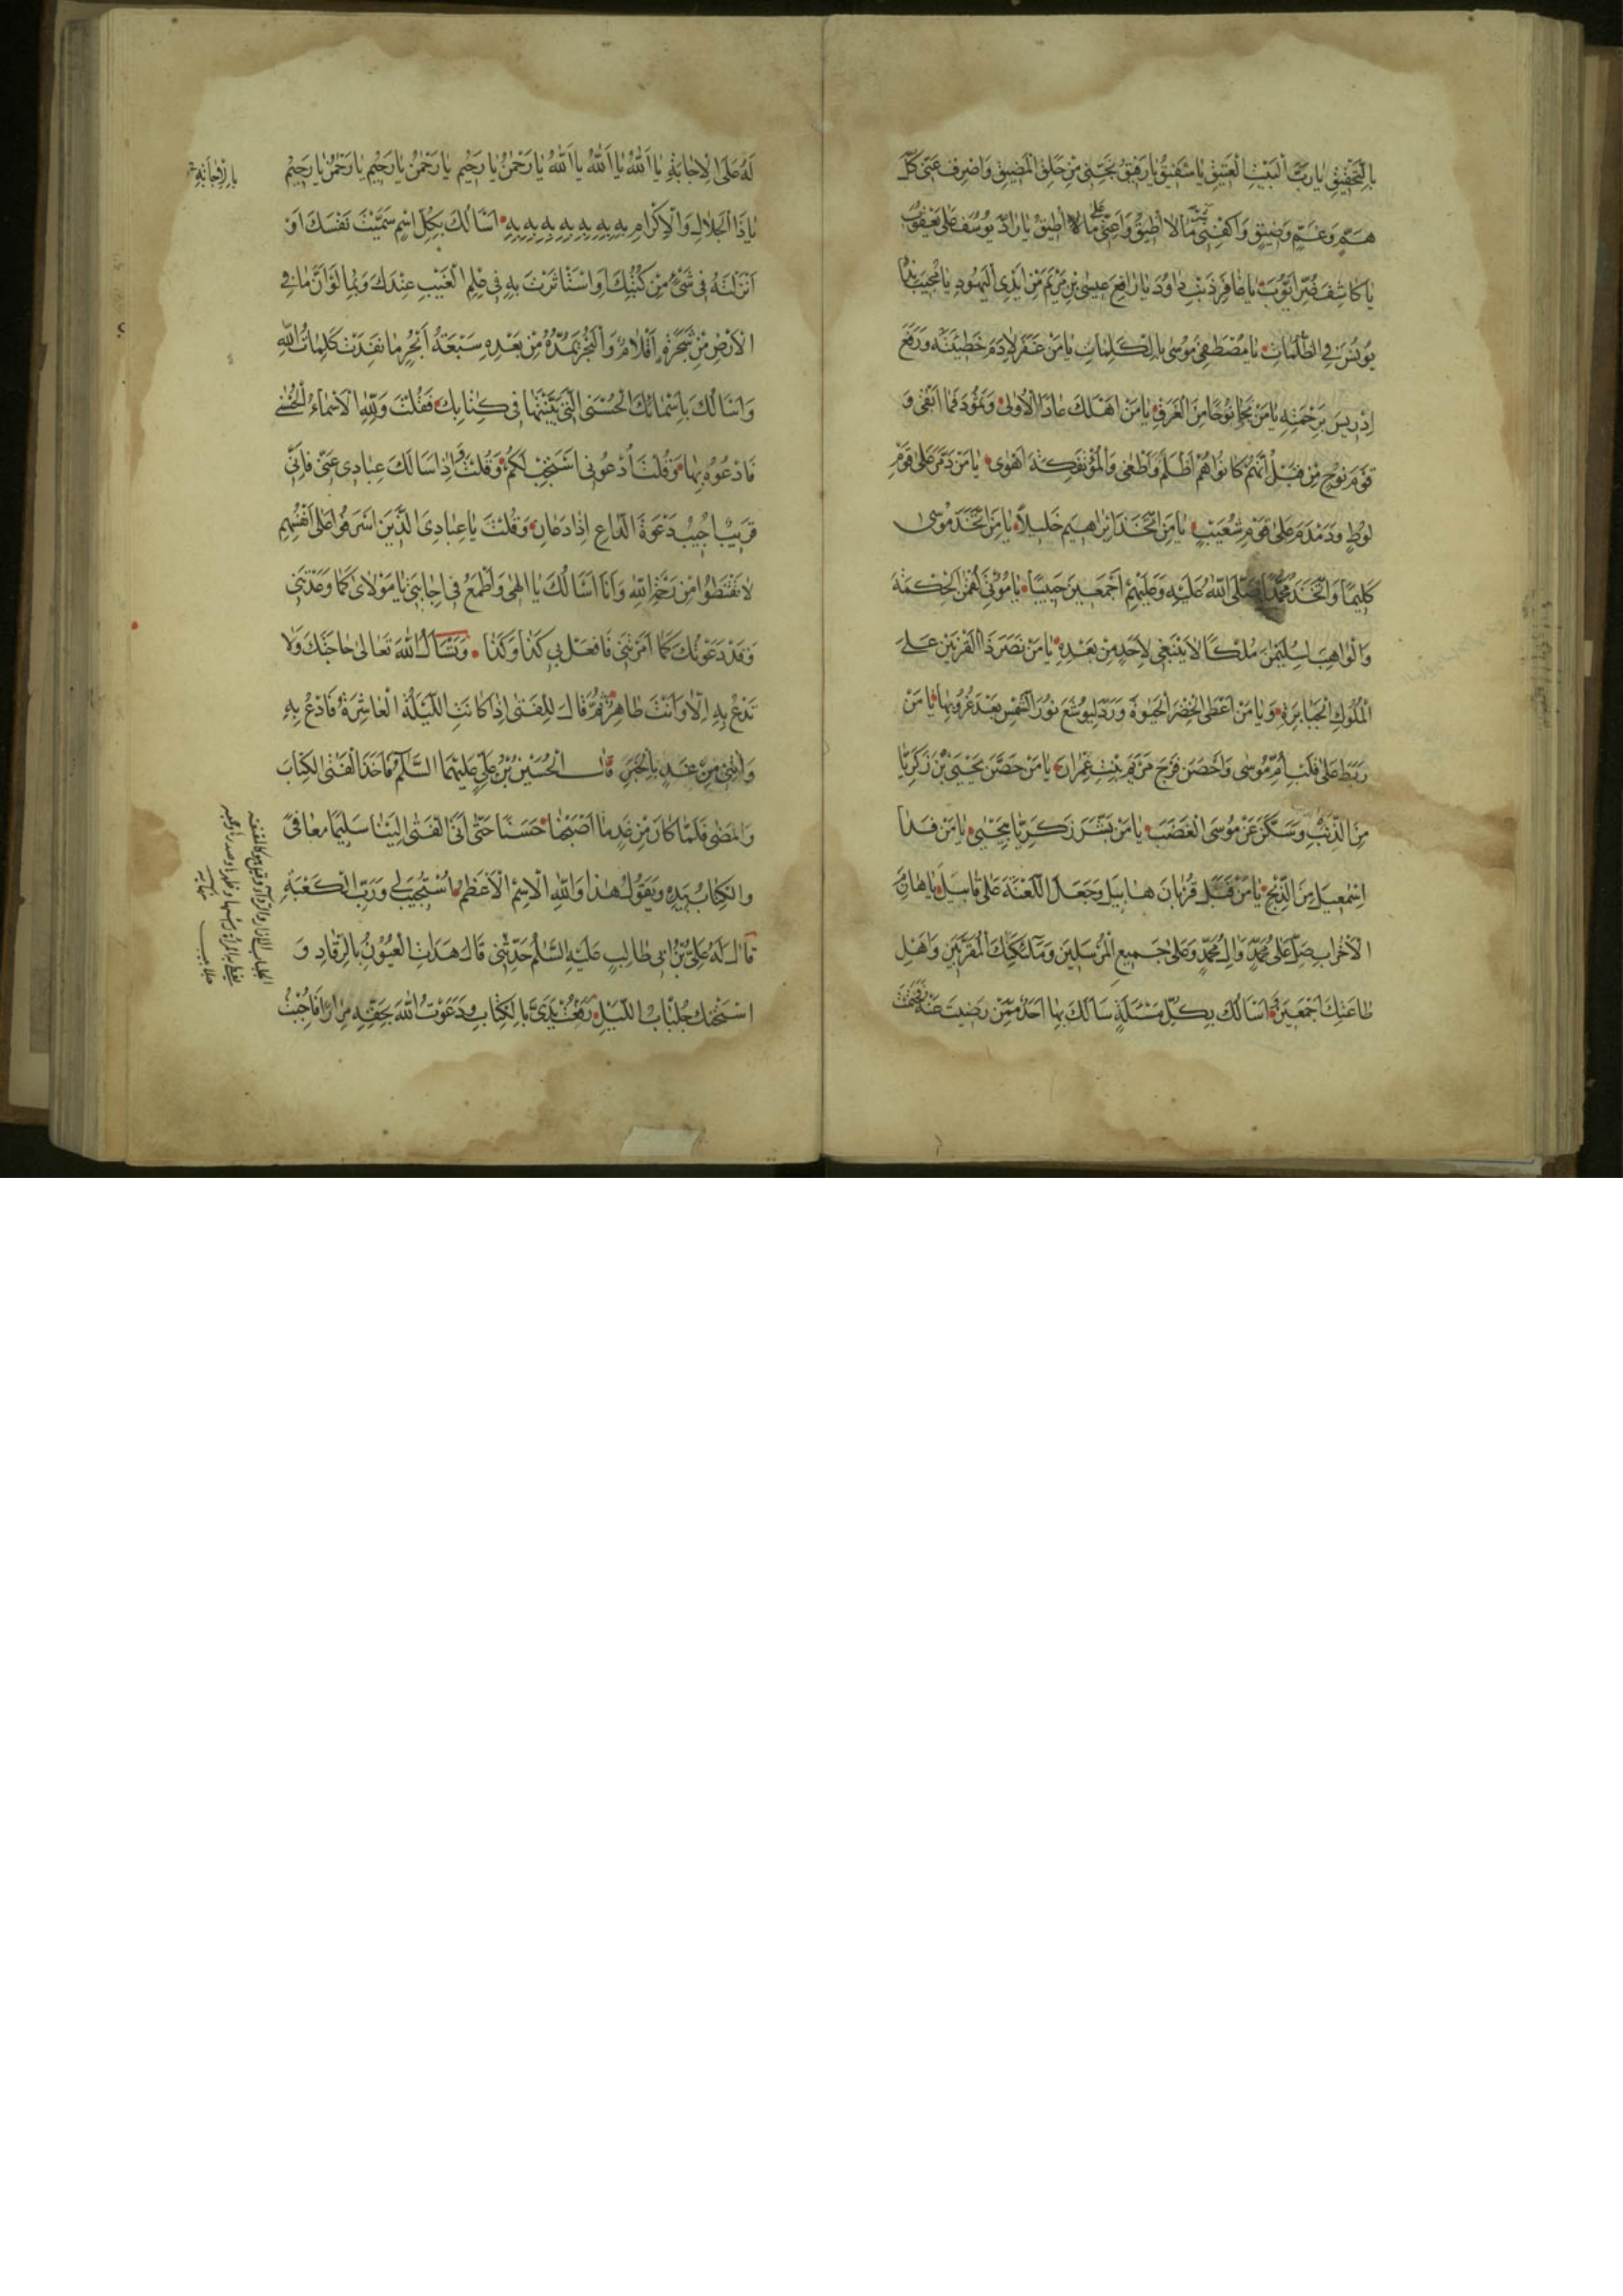 بِالتَّحْقِيقِ يَا رَبَّ الْبَيْتِ الْعَتِيقِ يَا شَفِيقُ يَا رَفِيقُ نَجِّنِي مِنْ حَلَقِ الْمَضِيقِ وَاصْرِفْ عَنِّي كُلَّ
هَمٍّ وَغَمٍّ وَضِيقٍ وَاكْفِنِي شَرَّ مَا لَا أُطِيقُ وَأَعِنِّي عَلَى مَا لَا أُطِيقُ يَا رَادَّ يُوسُفَ عَلَى يَعْقُوبَ
يَا كَاشِفَ ضُرِّ أَيُّوبَ يَا غَافِرَ ذَنْبِ دَاوُدَ يَا رَافِعَ عِيسَى بْنِ مَرْيَمَ مِنْ أَيْدِي الْيَهُودِ يَا مُجِيبَ نِدَاءِ
يُونُسَ فِي الظُّلُمَاتِ يَا مُصْطَفِيَ مُوسَى بِالْكَلِمَاتِ يَا مَنْ غَفَرَ لِآدَمَ خَطِيئَتَهُ وَرَفَعَ
إِدْرِيسَ بِرَحْمَتِهِ يَا مَنْ نَجَّا نُوحًا مِنَ الْغَرَقِ يَا مَنْ أَهْلَكَ عَادًا الْأُولَى وَثَمُودَ فَمَا أَبْقَى وَ
قَوْمَ نُوحٍ مِنْ قَبْلُ إِنَّهُمْ كَانُوا هُمْ أَظْلَمَ وَأَطْغَى وَالْمُؤْتَفِكَةَ أَهْوَى يَا مَنْ دَمَّرَ عَلَى قَوْمِ
لُوطٍ وَدَمْدَمَ عَلَى قَوْمِ شُعَيْبٍ يَا مَنِ اتَّخَذَ إِبْرَاهِيمَ خَلِيلًا يَا مَنِ اتَّخَذَ مُوسَى
كَلِيمًا وَاتَّخَذَ مُحَمَّدًا صَلَّى اللَّهُ عَلَيْهِ وَعَلَيْهِمْ أَجْمَعِينَ حَبِيبًا يَا مُؤْتِيَ لُقْمَنَ الْحِكْمَةَ
وَالْوَاهِبَ لِسُلَيْمَنَ مُلْكًا لَا يَنْبَغِي لِأَحَدٍ مِنْ بَعْدِهِ يَا مَنْ نَصَرَ ذَا الْقَرْنَيْنِ عَلَى
الْمُلُوكِ الْجَبَابِرَةِ وَيَا مَنْ أَعْطَى الْخِضْرَ الْحَيٰوةَ وَرَدَّ لِيُوشَعَ نُورَ الشَّمْسِ بَعْدَ غُرُوبِهَا يَا مَنْ
رَبَطَ عَلَى قَلْبِ أُمِّ مُوسَى وَأَحْصَنَ فَرْجَ مَرْيَمَ بِنْتِ عِمْرَانَ يَا مَنْ حَصَّنَ يَحْيَى بْنَ زَكَرِيَّا
مِنَ الذَّنْبِ وَسَكَّنَ عَنْ مُوسَى الْغَضَبَ يَا مَنْ بَشَّرَ زَكَرِيَّا بِيَحْيَى يَا مَنْ فَدَا
إِسْمَعِيلَ مِنَ الذَّبْحِ يَا مَنْ قَبِلَ قُرْبَانَ هَابِيلَ وَجَعَلَ اللَّعْنَةَ عَلَى قَابِيلَ يَا هَازِمَ
الْأَحْزَابِ صَلِّ عَلَى مُحَمَّدٍ وَآلِ مُحَمَّدٍ وَعَلَى جَمِيعِ الْمُرْسَلِينَ وَمَلَائِكَتِكَ الْمُقَرَّبِينَ وَأَهْلِ
طَاعَتِكَ أَجْمَعِينَ وَأَسْأَلُكَ بِكُلِّ مَسْئَلَةٍ سَأَلَكَ بِهَا أَحَدٌ مِمَّنْ رَضِيتَ عَنْهُ فَحَتَمْتَ
لَهُ عَلَى الْإِجَابَةِ يَا اللَّهُ يَا اللَّهُ يَا اللَّهُ يَا رَحْمَنُ يَا رَحِيمُ يَا رَحْمَنُ يَا رَحِيمُ يَا رَحْمَنُ يَا رَحِيمُ
يَا ذَا الْجَلَالِ وَالْإِكْرَامِ بِهِ بِهِ بِهِ بِهِ بِهِ بِهِ بِهِ أَسْأَلُكَ بِكُلِّ اسْمٍ سَمَّيْتَ نَفْسَكَ أَوْ
أَنْزَلْتَهُ فِي شَيْءٍ مِنْ كُتُبِكَ أَوِ اسْتَأْثَرْتَ بِهِ فِي عِلْمِ الْغَيْبِ عِنْدَكَ وَبِمَا لَوْ أَنَّ مَا فِي
الْأَرْضِ مِنْ شَجَرَةٍ أَقْلَامٌ وَالْبَحْرُ يَمُدُّهُ مِنْ بَعْدِهِ سَبْعَةُ أَبْحُرٍ مَا نَفِدَتْ كَلِمَاتُ اللَّهِ
وَأَسْأَلُكَ بِأَسْمَائِكَ الْحُسْنَى الَّتِي بَيَّنْتَهَا فِي كِتَابِكَ فَقُلْتَ وَلِلَّهِ الْأَسْمَاءُ الْحُسْنَى
فَادْعُوهُ بِهَا وَقُلْتَ ادْعُونِي أَسْتَجِبْ لَكُمْ وَقُلْتَ وَإِذَا سَأَلَكَ عِبَادِي عَنِّي فَإِنِّي
قَرِيبٌ أُجِيبُ دَعْوَةَ الدَّاعِ إِذَا دَعَانِ وَقُلْتَ يَا عِبَادِيَ الَّذِينَ أَسْرَفُوا عَلَى أَنْفُسِهِمْ
لَا تَقْنَطُوا مِنْ رَحْمَةِ اللَّهِ وَأَنَا أَسْأَلُكَ يَا إِلَهِي وَأَطْمَعُ فِي إِجَابَتِي يَا مَوْلَايَ كَمَا وَعَدْتَنِي
وَقَدْ دَعَوْتُكَ كَمَا أَمَرْتَنِي فَافْعَلْ بِي كَذَا وَكَذَا وَتَسْأَلُ اللَّهَ تَعَالَى حَاجَتَكَ وَلَا
تَدْعُ بِهِ إِلَّا وَأَنْتَ طَاهِرٌ ثُمَّ قَالَ لِلْفَتَى إِذَا كَانَتِ اللَّيْلَةُ الْعَاشِرَةُ فَادْعُ بِهِ
وَائْتِنِي مِنْ غَدٍ بِالْخَبَرِ قَالَ الْحُسَيْنُ بْنُ عَلِيٍّ عَلَيْهِمَا السَّلَامُ فَأَخَذَ الْفَتَى الْكِتَابَ
وَمَضَى فَلَمَّا كَانَ مِنْ غَدٍ مَا أَصْبَحْنَا حَسَنًا حَتَّى أَتَى الْفَتَى إِلَيْنَا سَلِيمًا مُعَافًى
وَالْكِتَابُ بِيَدِهِ وَيَقُولُ هَذَا وَاللَّهِ الْاِسْمُ الْأَعْظَمُ اسْتُجِيبَ لِي وَرَبِّ الْكَعْبَةِ
قَالَ لَهُ عَلِيُّ بْنُ أَبِي طَالِبٍ عَلَيْهِ السَّلَامُ حَدِّثْنِي قَالَ هَدَأَتِ الْعُيُونُ بِالرُّقَادِ وَ
اسْتَحْلَكَ جِلْبَابُ اللَّيْلِ رَفَعْتُ يَدَيَّ بِالْكِتَابِ وَدَعَوْتُ اللَّهَ بِحَقِّهِ مِرَارًا فَأُجِبْتُ